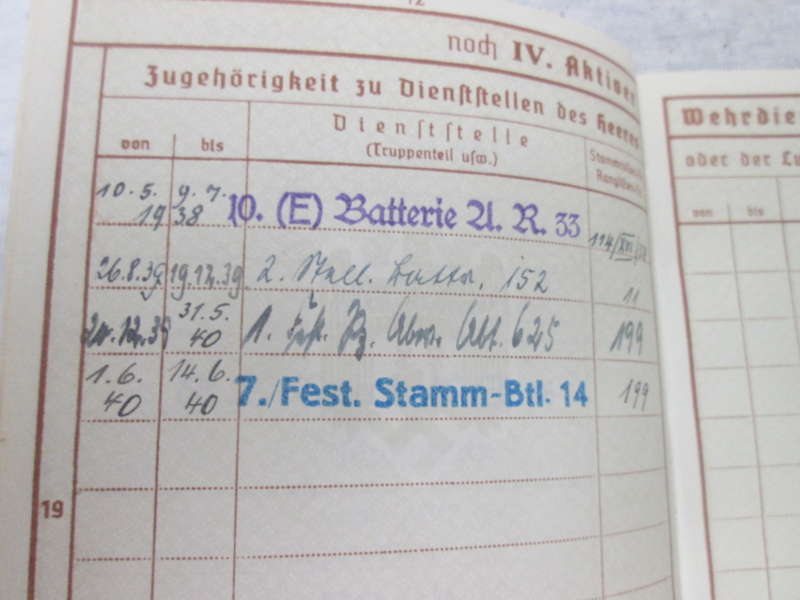 12
noch IV. Aktiver
Zugehörigkeit zu Dienststellen des Heeres
von bis Dienststelle
(Truppenteil usw.)
10.5. 9.7.
19 38 10. (E) Batterie A. R. 33 114/XVI/38
26.8.39 19.12.39 2. Battr. 152 11
20.12.39 31.5.
40 1. Fest. Pz. Abw. Abt. 625 199
1.6. 14.6.
40 40 7./Fest. Stamm-Btl. 14 199
19
Wehrdie
oder der Lu
von bis